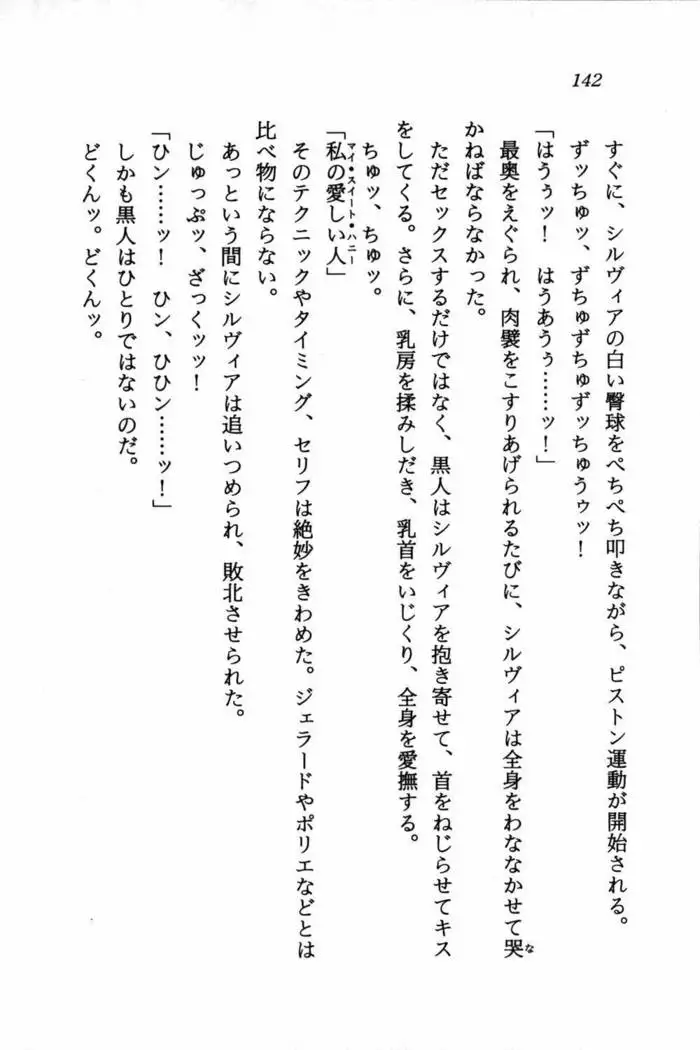 142
すぐに、シルヴィアの白い臀球をぺちぺち叩きながら、ピストン運動が開始される。
ずッちゅッ、ずちゅずちゅずッちゅうゥッ！
「はうぅッ！　はうあうぅ……ッ！」
最奥をえぐられ、肉襞をこすりあげられるたびに、シルヴィアは全身をわななかせて哭な
かねばならなかった。
ただセックスするだけではなく、黒人はシルヴィアを抱き寄せて、首をねじらせてキス
をしてくる。さらに、乳房を揉みしだき、乳首をいじくり、全身を愛撫する。
ちゅッ、ちゅッ。
マイ・スイート・ハニー
「私の愛しい人」
そのテクニックやタイミング、セリフは絶妙をきわめた。ジェラードやポリエなどとは
比べ物にならない。
あっという間にシルヴィアは追いつめられ、敗北させられた。
じゅっぷッ、ざっくッッ！
「ひン……ッ！　ひン、ひひン……ッ！」
しかも黒人はひとりではないのだ。
どくんッ。どくんッ。